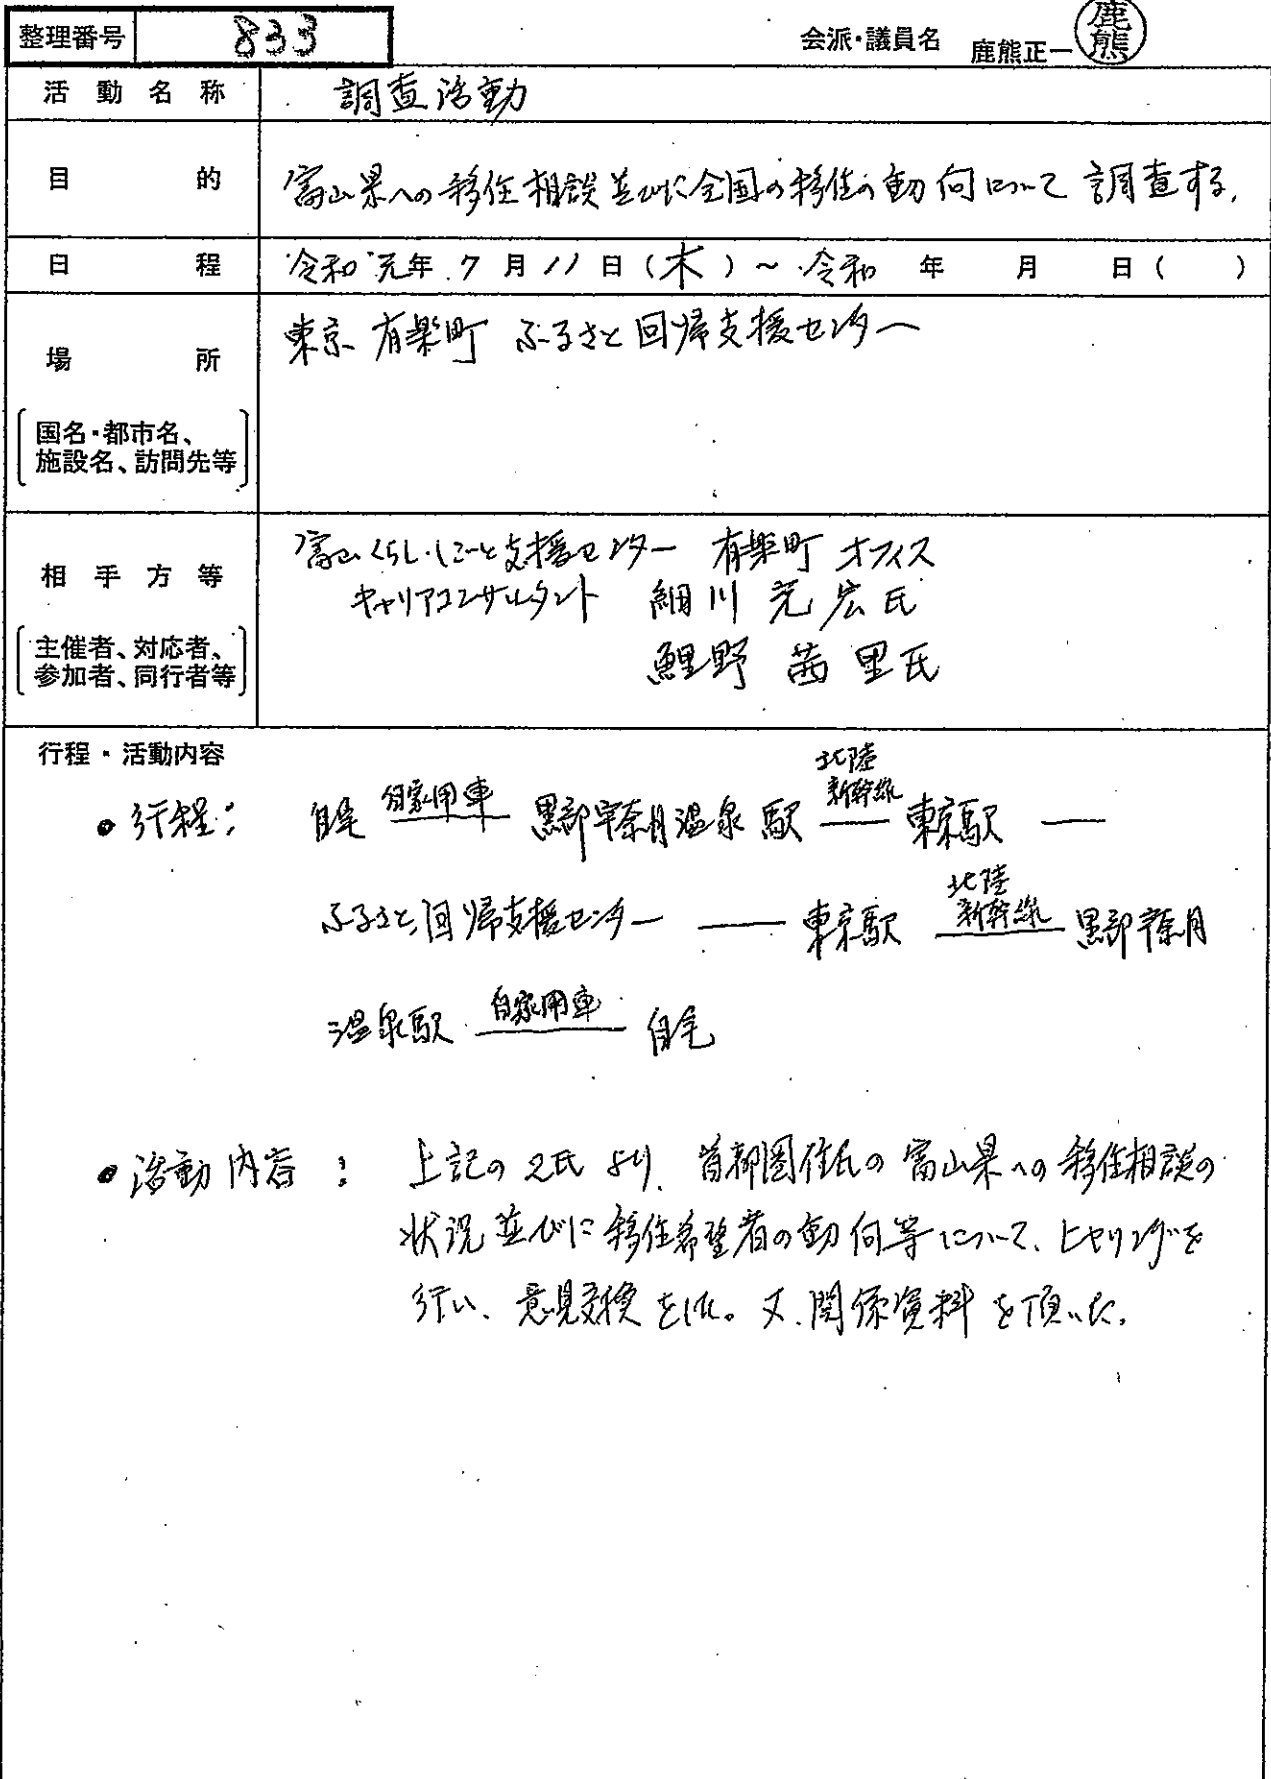 整理番号 833
会派・議員名 鹿熊正一 鹿熊
活動名称 調査活動
目的 富山県への移住相談並びに全国の移住の動向について調査する。
日程 令和元年7月11日(木)～令和 年 月 日( )
場所 東京 有楽町 ふるさと回帰支援センター
国名・都市名、
施設名、訪問先等
相手方等 富山くらし・しごと支援センター 有楽町オフィス
キャリアコンサルタント 細川 完宏氏
主催者、対応者、
参加者、同行者等
鯉野 茜里氏
行程・活動内容
北陸
新幹線
・行程: 自宅 自家用車 黒部宇奈月温泉駅 ― 東京駅 ―
北陸
新幹線
ふるさと回帰支援センター ― 東京駅 黒部宇奈月
温泉駅 自家用車 自宅
・活動内容: 上記の2氏より、首都圏住民の富山県への移住相談の
状況並びに移住希望者の動向等について、ヒヤリングを
行い、意見交換をした。又、関係資料を頂いた。